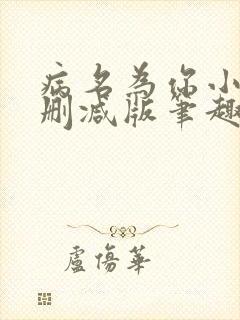 病名为你小
删减版笔趣
盧傷華